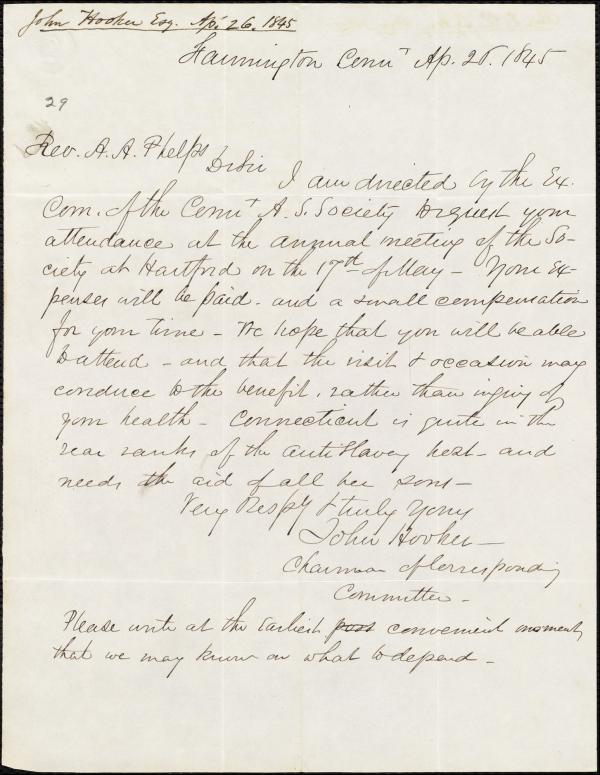 John Hooker Esq. Ap. 26. 1845
Farmington Connt Ap. 26. 1845
29
Rev. A. A. Phelps
Dr Sir
I am directed by the Ex.
Com. of the Connt A. S. Society to request your
attendance at the annual meeting of the So-
ciety at Hartford on the 17th of May - Your Ex-
penses will be paid - and a small compensation
for your time - We hope that you will be able
to attend - and that the visit & occasion may
conduce to the benefit, rather than injury of
your health - Connecticut is quite in the
rear ranks of the antislavery host - and
needs the aid of all her sons -
Very Respy & truly yours
John Hooker -
Chairman of Corresponding
Committee -
Please write at the Earliest post convenient moment,
that we may know on what to depend -